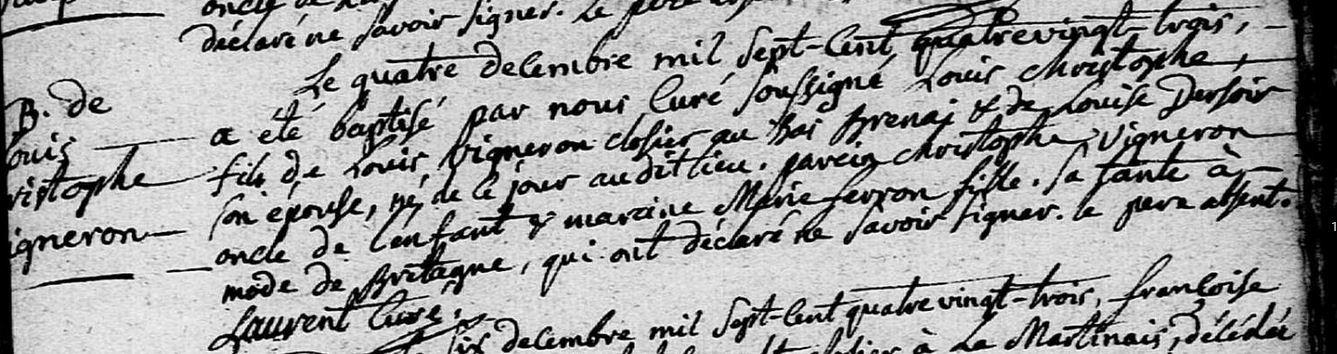 déclaré ne savoir signer. le pere
Le quatre decembre mil sept-cent quatrevingt-trois,
B. de
a été baptisé par nous Curé soussigné Louis christophe,
ouis
fils de Louis Vigneron closier au Bas Brenai & de Louise Dersoir
ristophe
son épouse, né de ce jour audit lieu. parein christophe Vigneron
igneron
oncle de l'enfant & mareine Marie ferron fille. sa tante à
mode de Bretagne, qui ont déclaré ne savoir signer. le pere absent.
Laurent Curé.
six decembre mil sept-cent quatrevingt-trois, françoise
closier à La Martinais, décédée